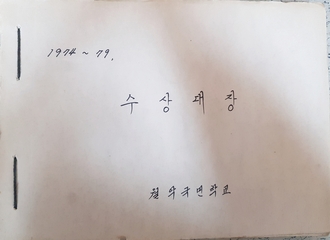 1974 ~ 79.
수 상 대 장
월악국민학교